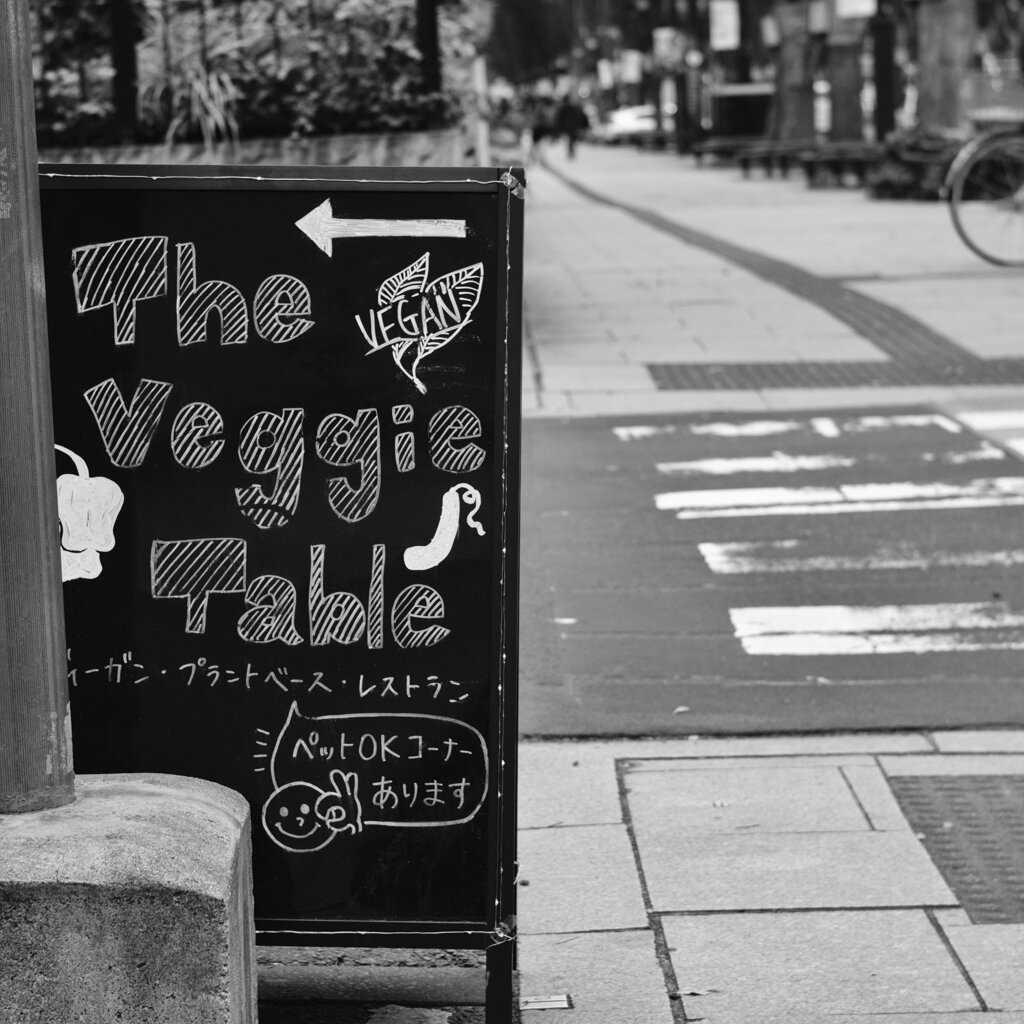 The
VEGAN
Veggie
Table
ィーガン・プラントベース・レストラン
ペットOKコーナー
あります